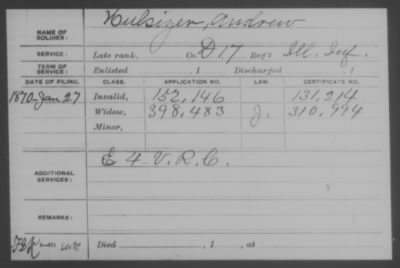 NAME OF SOLDIER: Hulsizer, Andrew
SERVICE: Late rank, Co. D 17 Reg't Ill. Inf.
TERM OF SERVICE: Enlisted , 1 Discharged , 1
DATE OF FILING. CLASS. APPLICATION NO. LAW. CERTIFICATE NO.
1870 Jan 27 Invalid, 152,146 131,214
Widow, 398,483 J. 310,994
Minor,
ADDITIONAL SERVICES: E 4. V. R. C.
REMARKS:
Died , 1 , at